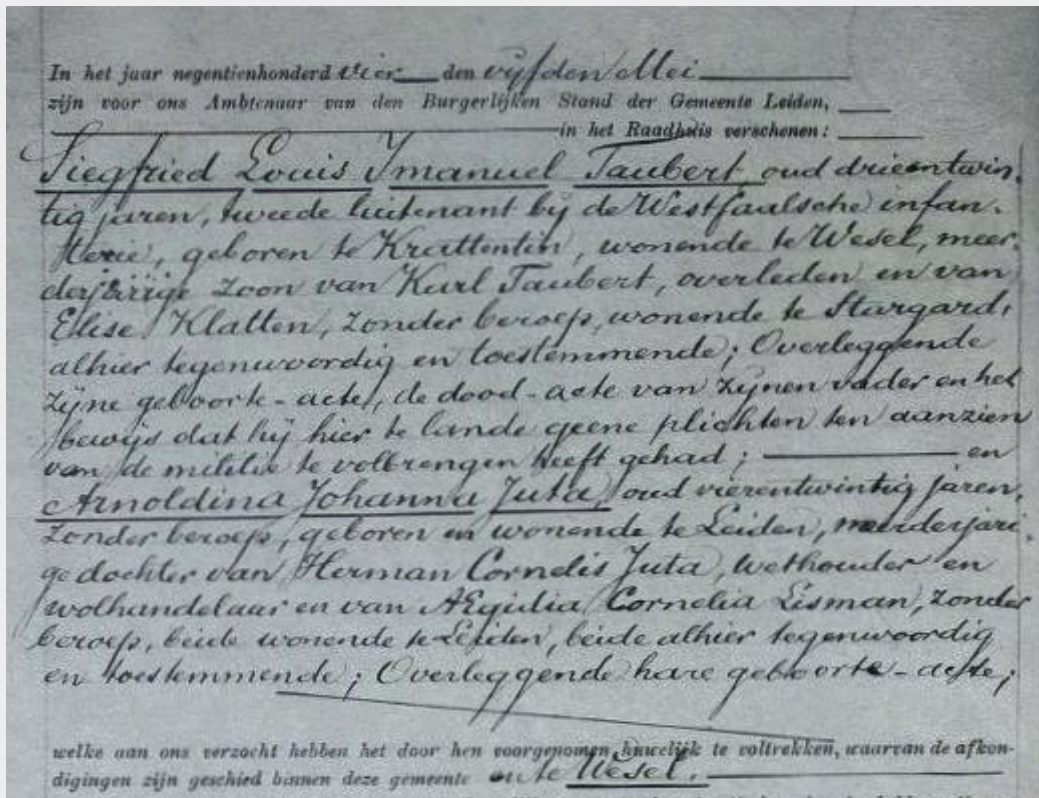 In het jaar negentienhonderd vier den vijfden Mei
zijn voor ons Ambtenaar van den Burgerlijken Stand der Gemeente Leiden,
in het Raadhuis verschenen:
Siegfried Louis Imanuel Taubert oud drieentwin-
tig jaren, tweede luitenant bij de Westfaalsche infan-
terie, geboren te Krattentin, wonende te Wesel, meer-
derjarige zoon van Kurl Taubert, overleden en van
Elise Klatten, zonder beroep, wonende te Stargard,
alhier tegenwoordig en toestemmende; Overleggende
zijne geboorte-acte, de dood-acte van zijnen vader en het
bewijs dat hij hier te lande geene plichten ten aanzien
van de militie te volbrengen heeft gehad; en
Arnoldina Johanna Juta, oud vierentwintig jaren,
zonder beroep, geboren en wonende te Leiden, meerderjari-
ge dochter van Herman Cornelis Juta, wethouder en
wolhandelaar en van AEgidia Cornelia Lisman, zonder
beroep, beide wonende te Leiden, beide alhier tegenwoordig
en toestemmende; Overleggende hare geboorte-acte;
welke aan ons verzocht hebben het door hen voorgenomen huwelijk te voltrekken, waarvan de afkon-
digingen zijn geschied binnen deze gemeente en te Wesel.